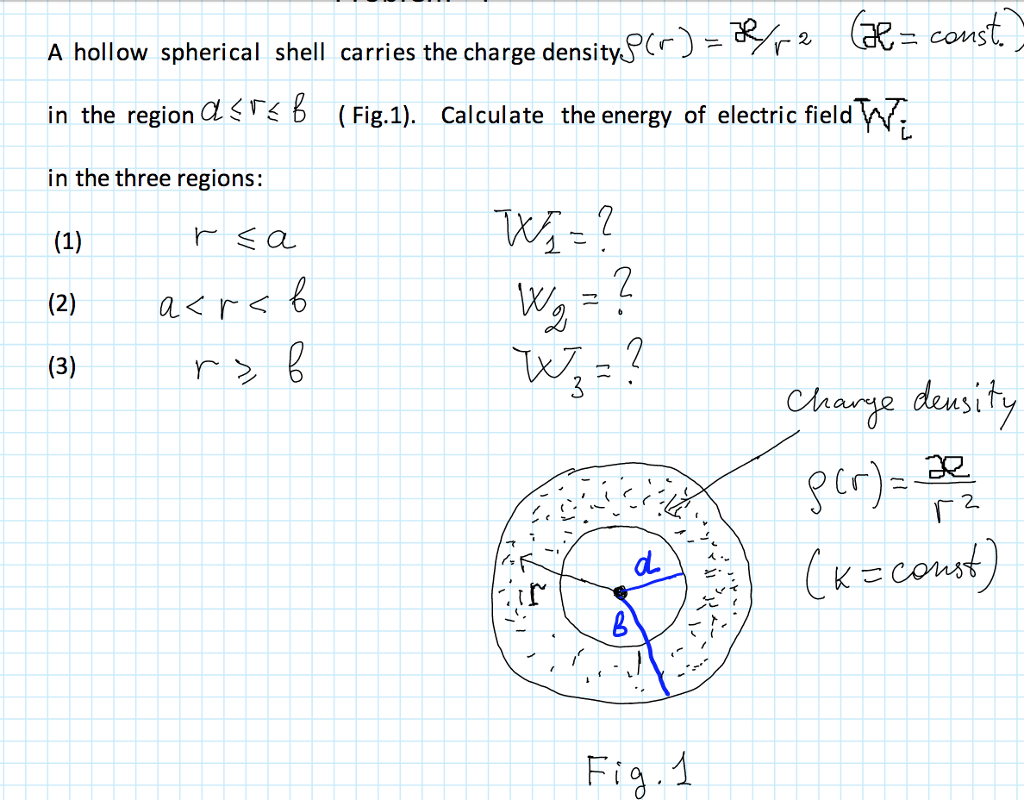 A hollow spherical shell carries the charge density ρ(r) = æ/r² (æ = const.)
in the region a ≤ r ≤ b ( Fig.1). Calculate the energy of electric field Wᵢ
in the three regions:
(1) r ≤ a W₁ = ?
(2) a < r < b W₂ = ?
(3) r ⩾ b W₃ = ?
Charge density
ρ(r) = æ/r²
(K = const)
a
r
b
Fig. 1